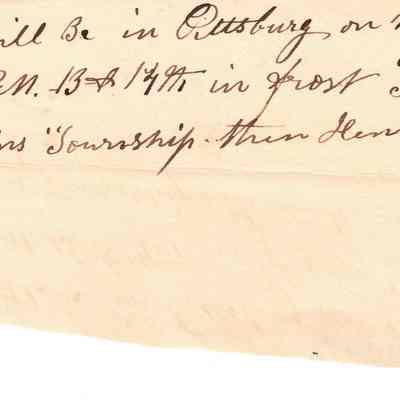 ill Be in Pittsburg on
M. 13 & 14th in frost
ns Township then Hen